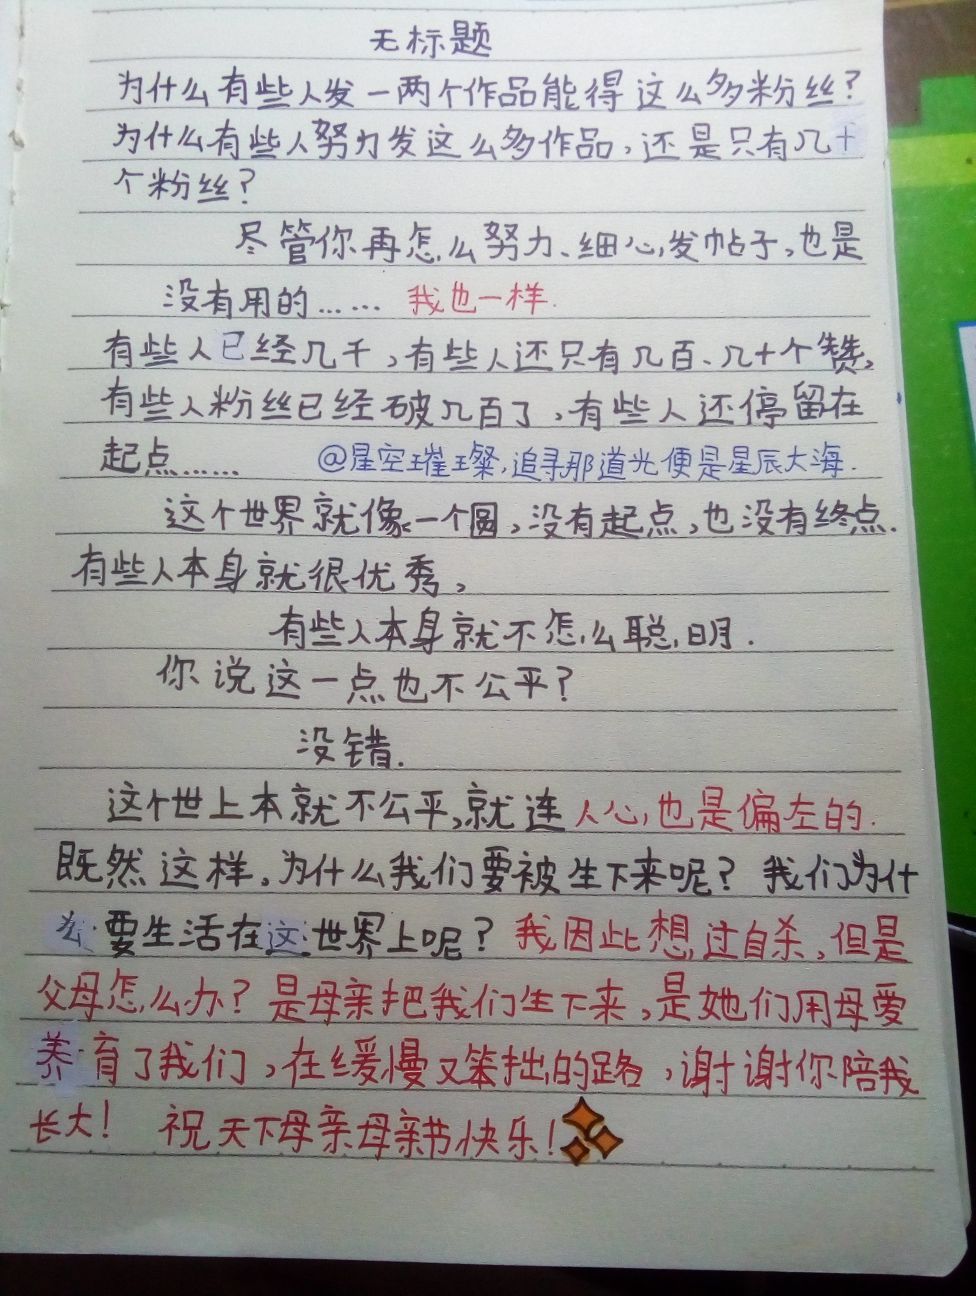 无标题
为什么有些人发一两个作品能得这么多粉丝？
为什么有些人努力发这么多作品，还是只有几十
个粉丝？
尽管你再怎么努力、细心，发帖子，也是
没有用的…… 我也一样.
有些人已经几千，有些人还只有几百、几十个赞，
有些人粉丝已经破几百了，有些人还停留在
起点…… @星空璀璨，追寻那道光便是星辰大海.
这个世界就像一个圆，没有起点，也没有终点.
有些人本身就很优秀，
有些人本身就不怎么聪明.
你说这一点也不公平？
没错.
这个世上本就不公平，就连人心，也是偏左的.
既然这样。为什么我们要被生下来呢？我们为什
么要生活在这世界上呢？我因此想过自杀，但是
父母怎么办？是母亲把我们生下来，是她们用母爱
养育了我们，在缓慢又笨拙的路，谢谢你陪我
长大！ 祝天下母亲母亲节快乐！